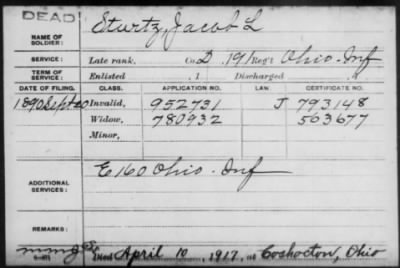 DEAD
NAME OF SOLDIER: Sturtz, Jacob L
SERVICE: Late rank, Co. D, 191 Reg't Ohio Inf
TERM OF SERVICE: Enlisted , 1 Discharged , 1
DATE OF FILING. CLASS. APPLICATION NO. LAW. CERTIFICATE NO.
1890 Sept 20 Invalid, 952731 J 793148
Widow, 780932 563677
Minor,
ADDITIONAL SERVICES: E 160 Ohio Inf
REMARKS:
Died April 10, 1917, at Coshocton, Ohio